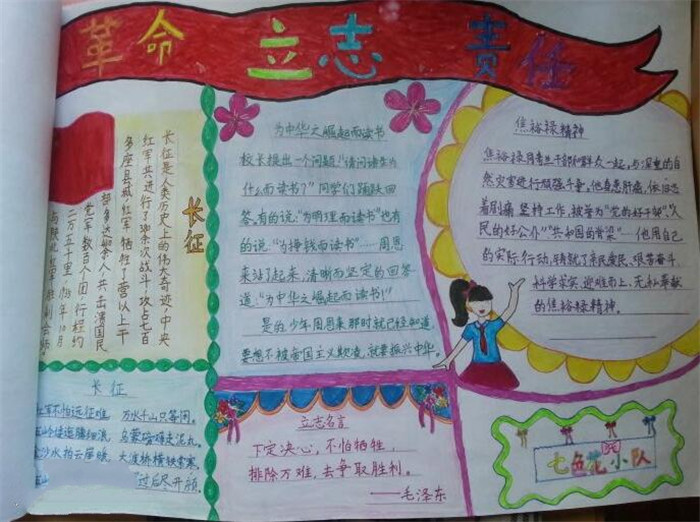 革命、立志、责任
长征
长征是人类历史上的伟大奇迹,中央
红军共进行了380余次战斗,攻占七百
多座县城,红军牺牲了营以上干
部多达430余人,共击溃国民
党军数百个团,行程约
二万五千里,
为中华之崛起而读书
校长提出一个问题:“请问诸生为
什么而读书?”同学们踊跃回
答。有的说:“为明理而读书”也有
的说“为挣钱而读书”……周恩
来站了起来,清晰而坚定的回答
道:“为中华之崛起而读书!”
是的少年周恩来那时就已经知道,
要想不被帝国主义欺凌,就要振兴中华。
焦裕禄精神
焦裕禄同志与干部和群众一起,与深重的自
然灾害进行顽强斗争,他身患肝病,依旧忍
着剧痛坚持工作,被誉为“党的好干部”、“人
民的好公仆”“共和国的脊梁”……他用自己
的实际行动,铸就了亲民爱民、艰苦奋斗、
科学求实、迎难而上、无私奉献
的焦裕禄精神。
长征
军不怕远征难,万水千山只等闲。
岭逶迤腾细浪,乌蒙磅礴走泥丸。
沙水拍云崖暖,大渡桥横铁索寒。
过后尽开颜。
立志名言
下定决心,不怕牺牲,
排除万难,去争取胜利。
——毛泽东
七色花小队